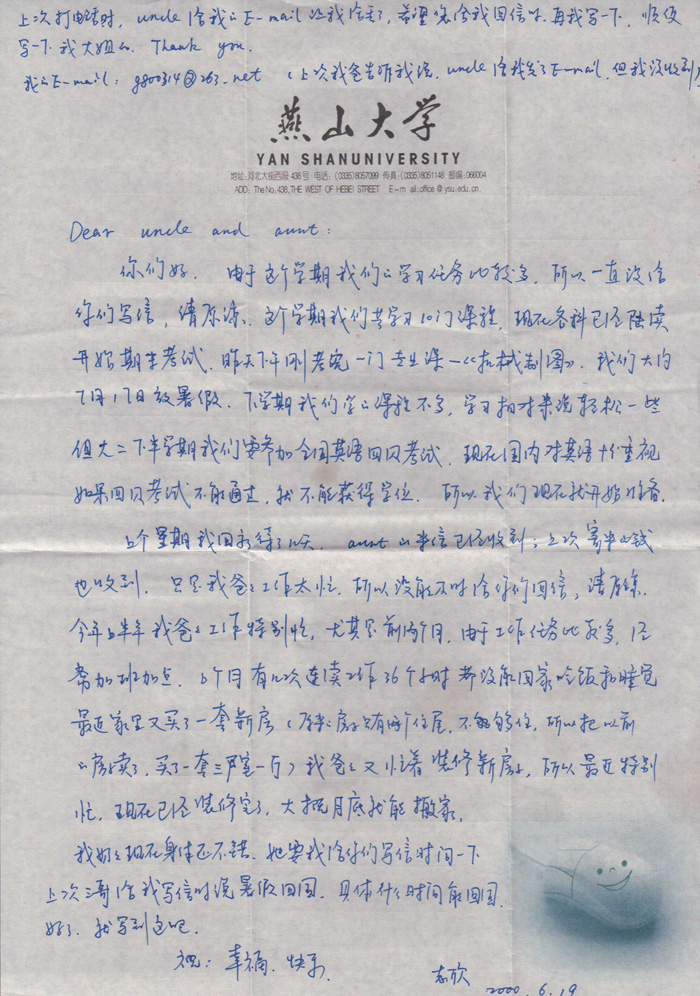 上次打电话时, uncle给我的E-mail地址我给丢了, 希望您给我回信时再我写一下, 顺便
写一下我大姐的. Thank you.
我的E-mail: g800314@263.net (上次我爸告诉我说, uncle给我发了E-mail, 但我没收到)
燕山大学
YAN SHANUNIVERSITY
地址:河北大街西段438号 电话:(0335)8057099 传真:(0335)8051148 邮编:066004
ADD: The No.438,THE WEST OF HEBEI STREET E-mail:office@ysu.edu.cn.
Dear uncle and aunt:
你们好. 由于这个学期我们的学习任务比较多, 所以一直没给
你们写信, 请原谅. 这个学期我们共学习10门课程, 现在各科已经陆续
开始期末考试. 昨天下午刚考完一门专业课—《机械制图》. 我们大约
7月17日放暑假. 下学期我们学的课程不多, 学习相对来说轻松一些
但大二下半学期我们要参加全国英语四级考试. 现在国内对英语十分重视
如果四级考试不能通过, 就不能获得学位. 所以我们现在就开始准备.
上个星期我回家待了几天. aunt的来信已经收到; 上次寄来的钱
也收到. 只是我爸爸工作太忙, 所以没能及时给你们回信, 请原谅.
今年上半年我爸爸工作特别忙, 尤其是前两个月, 由于工作任务比较多, 经
常加班加点. 6个月有几次连续工作36个小时都没能回家吃饭和睡觉
最近家里又买了一套新房 (原来的房子只有两个住屋, 不够住, 所以把以前
的房子卖了, 买了一套三室一厅) 我爸爸又忙着装修新房子, 所以最近特别
忙. 现在已经装修完了, 大概月底就能搬家.
我奶奶现在身体还不错. 她要我给你们写信时问一下
上次三哥给我写信时说暑假回国. 具体什么时间能回国.
好了. 就写到这吧.
祝: 幸福、快乐.
志欣
2000.6.19